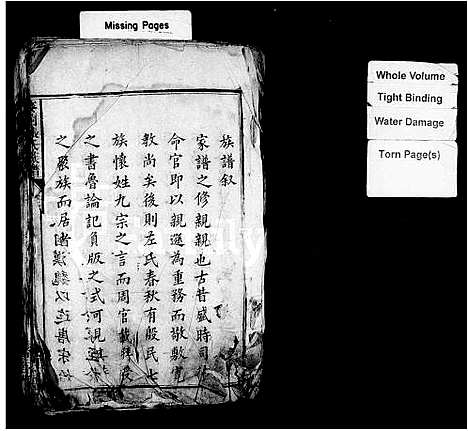 Missing Pages
Whole Volume
Tight Binding
Water Damage
Torn Page(s)
族譜叙
家譜之修親親也古昔盛時司
命官即以親遜為重務而敬敷
教尚矣後則左氏春秋有殷民七
族懷姓九宗之言而周官載
之書魯論記負版之式河
之聚族而居漢魏以迄唐宋